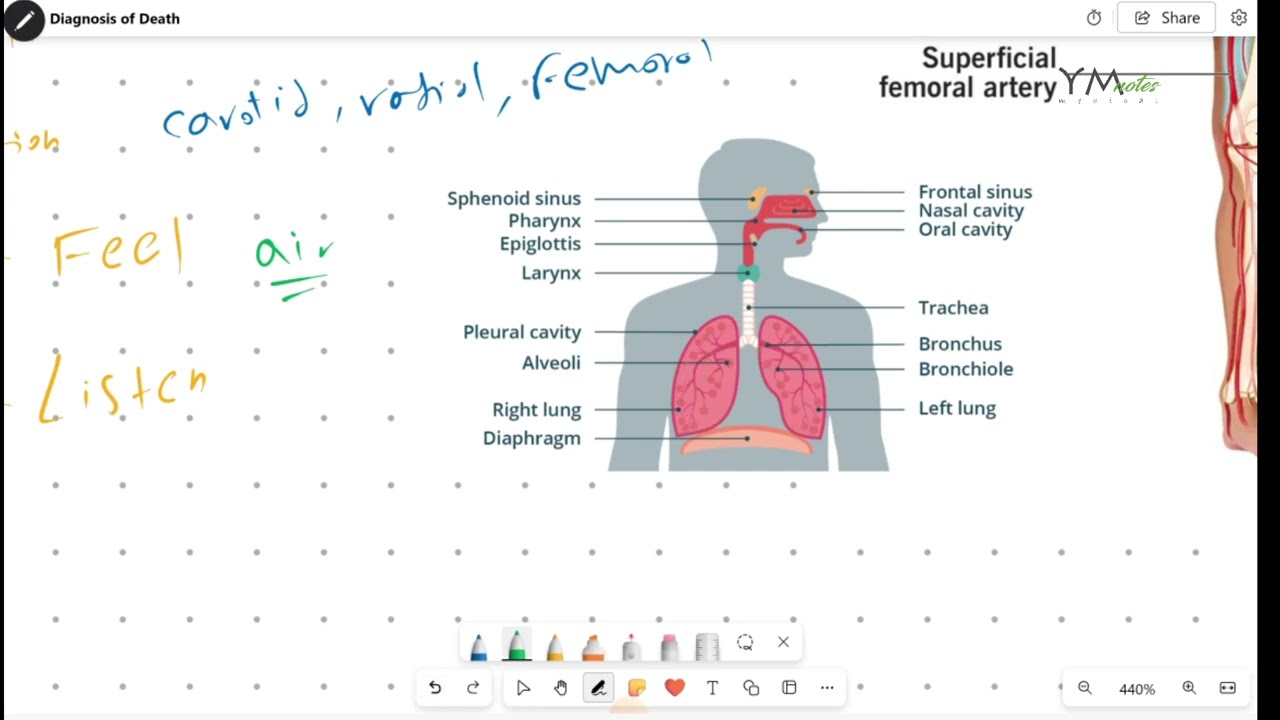 Diagnosis of Death
Share
carotid, radial, Femoral
Superficial
femoral artery
YM notes
Sphenoid sinus
Pharynx
Epiglottis
Larynx
Pleural cavity
Alveoli
Right lung
Diaphragm
Frontal sinus
Nasal cavity
Oral cavity
Trachea
Bronchus
Bronchiole
Left lung
Feel air
Listen
T
440%